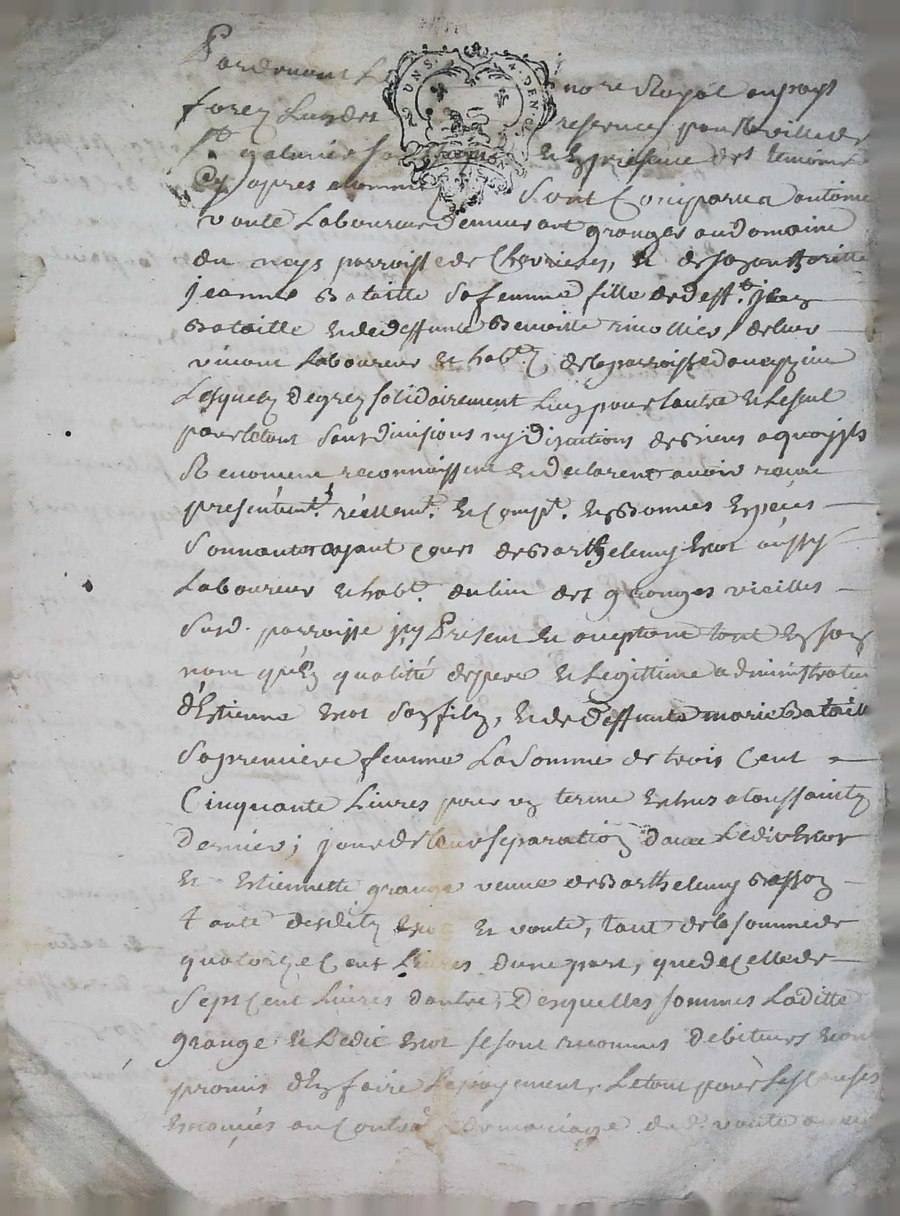 Pardevant Le no.re Royal au pays
forez Lun des reservés pour la ville de
St galmier sou et En presence des temoins
Cy apres nomm Sont Comparus antoine
voute Laboureur Demeurant granger au domaine
du nays parroisse de Chevrieres, et de son authoritte
jeanne Bataille sa femme fille de deft. jean
Bataille et de deffunte Benoitte de leur
vivant Laboureur et hab.t de la parroisse daveyzieu
Lesquels de gré solidairement Lun pour lautre et Le seul
pour le tout sans divisions ny discutions de Biens a quoy ils
Renoncent reconnoissent et declarent avoir receu
presentem.t réellem.t et Comp.t en Bonnes Especes
Sonnantes ayant Cours de Barthelemy aussy
Laboureur et hab.t du lieu des granges vieilles
Susd. parroisse icy Présent et aceptant tant en son
nom qu'en qualitté de pere et Legittime administrateur
d'Estienne son fils, et de deffunte marie Bataille
Sa premiere femme La Somme de trois Cent
Cinquante Livres pour un terme Echus a toussaintz
Dernier, jour de leur separation davec Ledit
et Estiennette grange veuve de Barthelemy
tante desdits et voute, tant de la somme de
quatorze Cent Livres dune part, que de Celle de
Sept Cent Livres dautre, Desquelles sommes Laditte
grange et Ledit se sont reconnus debiteurs
promis d'En faire Le payement, Le tout pour Les Causes
Enoncées au Contrat de mariage de voute